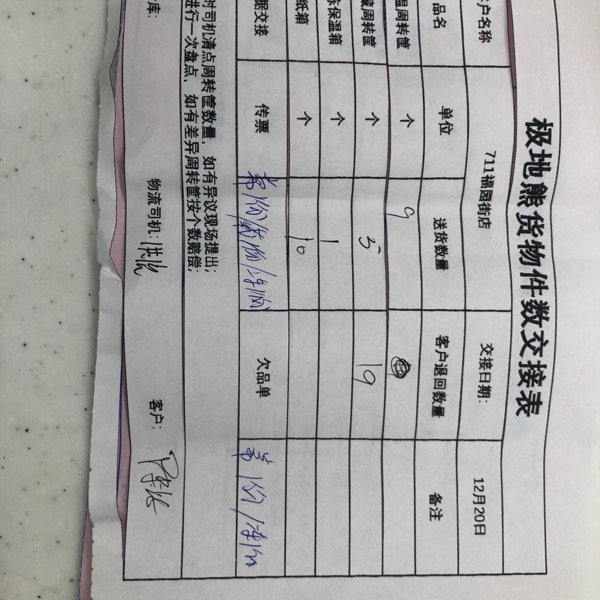 极地熊货物件数交接表
户名称 711福园街店 交接日期: 12月20日
品名 单位 送货数量 客户退回数量 备注
温周转筐 个 9
周转筐 个 5 19
保温箱 个 1
纸箱 个 10
据交接 传票 欠品单
对司机清点周转筐数量,如有异议现场提出;
进行一次盘点,如有差异周转筐按个数赔偿;
库: 物流司机: 客户: